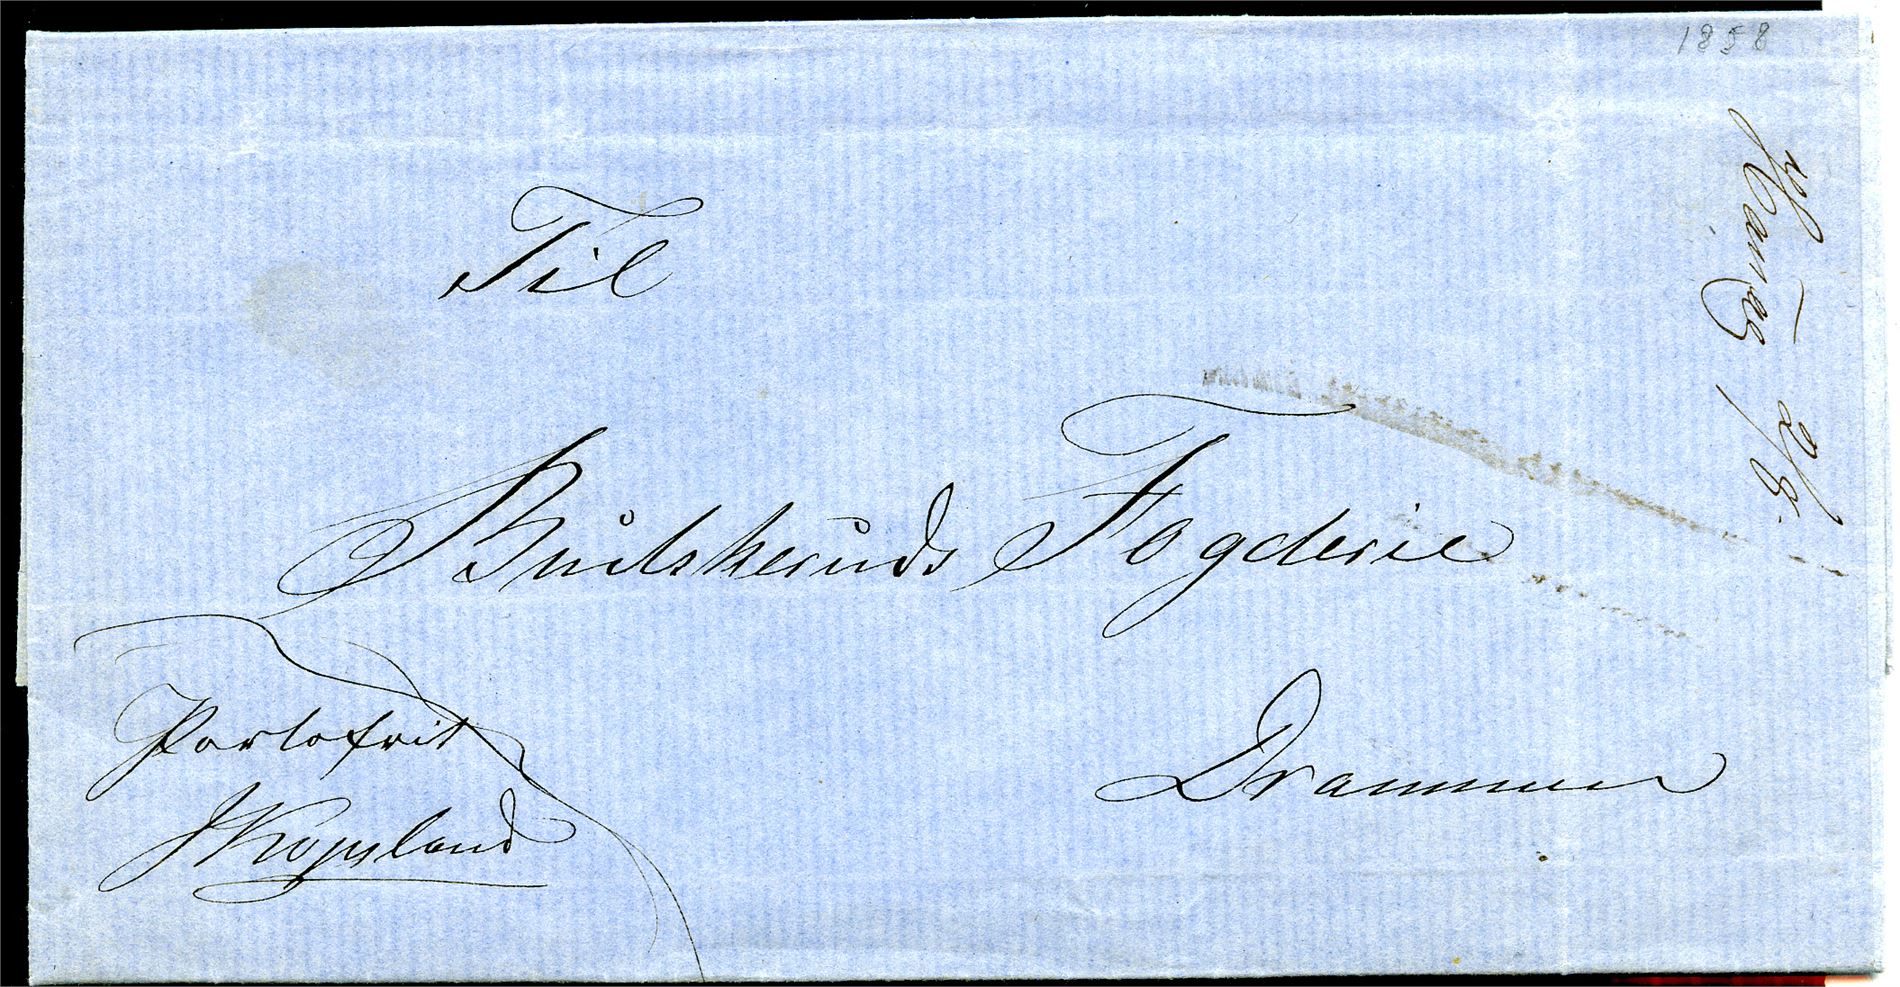 1858
Til
Buskeruds Fogderie
Drammen
Portofrit
Hougsund 2/8.